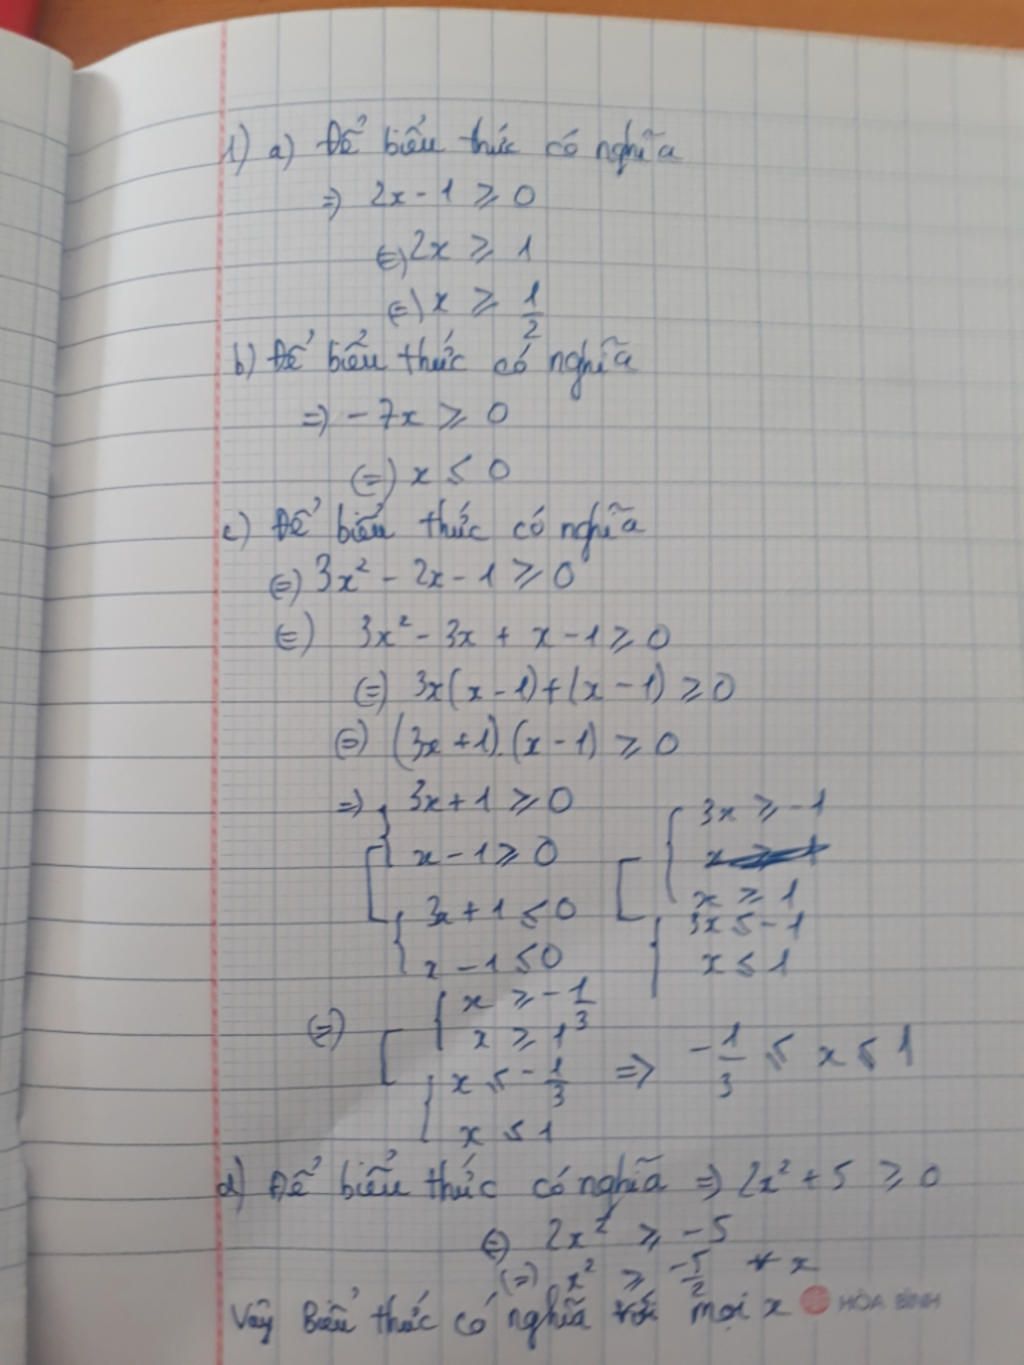 1) a) Để biểu thức có nghĩa
=> 2x - 1 ≥ 0
(=) 2x ≥ 1
(=) x ≥ 1/2
b) Để biểu thức có nghĩa
=> - 7x ≥ 0
(=) x ≤ 0
c) Để biểu thức có nghĩa
(=) 3x² - 2x - 1 ≥ 0
(=) 3x² - 3x + x - 1 ≥ 0
(=) 3x(x - 1) + (x - 1) ≥ 0
(=) (3x + 1).(x - 1) ≥ 0
=> 3x + 1 ≥ 0
x - 1 ≥ 0
3x + 1 ≤ 0
x - 1 ≤ 0
3x ≥ -1
x ≥ 1
3x ≤ -1
x ≤ 1
(=) x ≥ -1/3
x ≥ 1
x ≤ -1/3
x ≤ 1
=> -1/3 ≤ x ≤ 1
d) Để biểu thức có nghĩa => 2x² + 5 ≥ 0
(=) 2x² ≥ -5
(=) x² ≥ -5/2 ∀ x
Vậy Biểu thức có nghĩa với mọi x
HÒA BÌNH